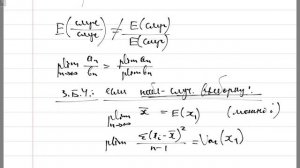 E(случ/случ) ≠ E(случ)/E(случ)
plim n→∞ aₙ/bₙ = plim aₙ/plim bₙ
З.Б.Ч.: если набл- случ. выборку:
plim n→∞ x̄ = E(x₁) (можно:
plim Σ(xᵢ-x̄)²/n-1 = Var(x₁)